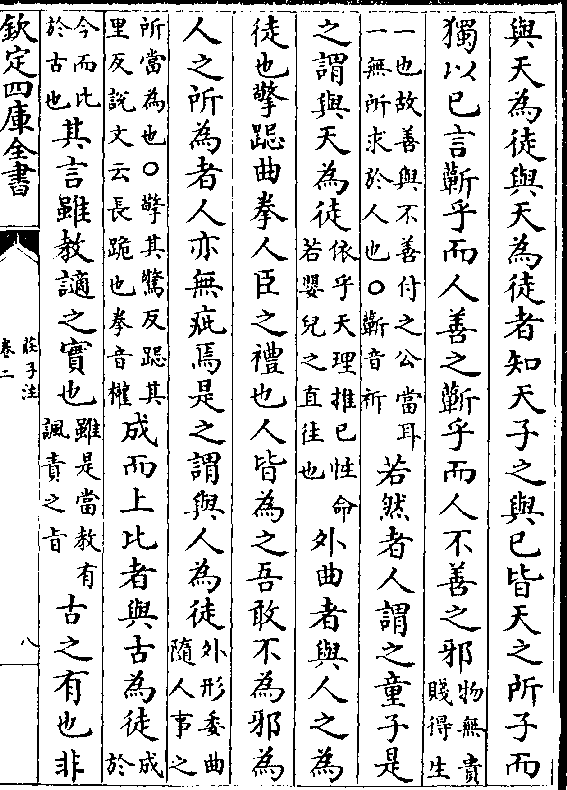 與天為徒與天為徒者知天子之與已皆天之所子而
獨以已言蘄乎而人善之蘄乎而人不善之邪物無貴賤得生
一也故善與不善付之公當耳一無所求於人也○蘄音祈若然者人謂之童子是
之謂與天為徒依乎天理推已性命若嬰兒之直往也外曲者與人之為
徒也擎跽曲拳人臣之禮也人皆為之吾敢不為邪為
人之所為者人亦無疵焉是之謂與人為徒外形委曲隨人事之
所當為也○擎其驚反跽其里反說文云長跪也拳音權成而上比者與古為徒成於
今而比於古也其言雖教讁之實也雖是當教有諷責之旨古之有也非
欽定四庫全書
莊子注
卷二
八